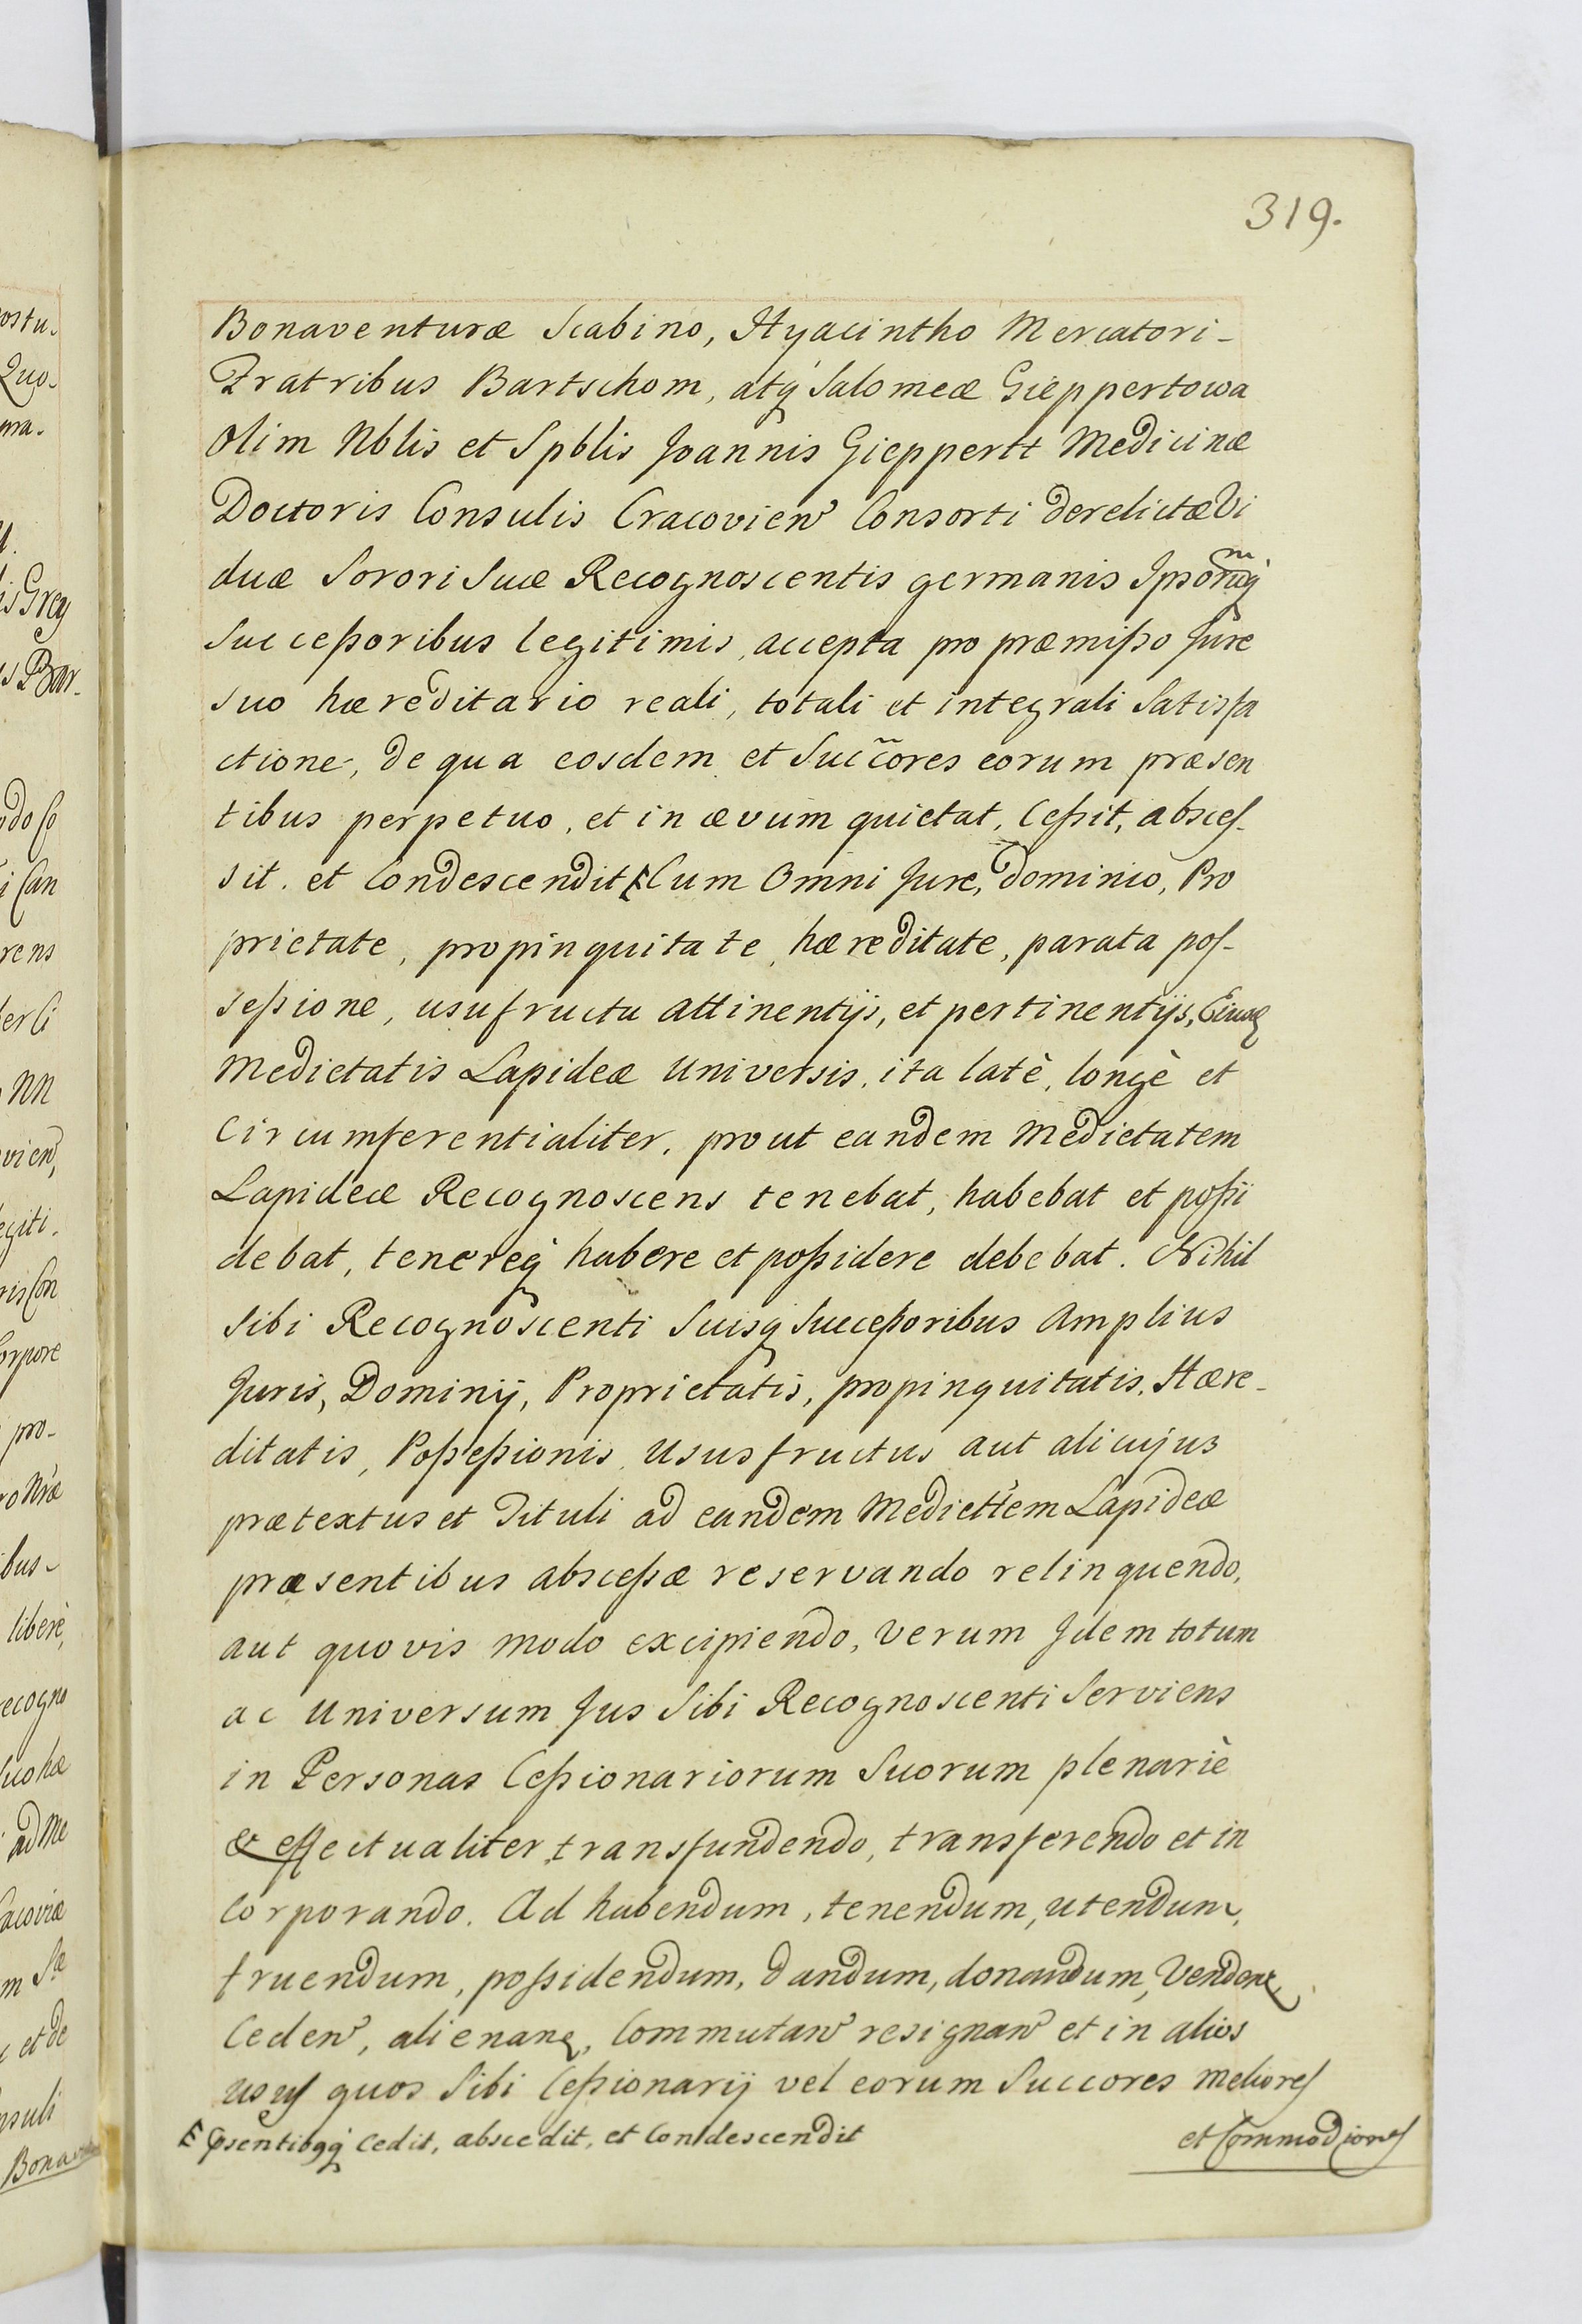 319.
Bonaventuræ Scabino, Hyacintho Mercatori-
Fratribus Bartschom, atq́ Salomeæ Gieppertowa
Olim Nblis et Spblis Joannis Gieppertt Medicinæ
Doctoris Consulis Cracovien̄ Consorti derelictæ Vi
duæ Sorori Suæ Recognoscentis germanis Ipsorumq́
Succeßoribus legitimis, accepta pro præmißo Jure
suo hæreditario reali, totali et integrali Satisfa
ctione, de qua eosdem et Succ̃ores eorum præsen
tibus perpetuo, et in ævum quietat, Ceßit, absces-
sit. et Condescendit Cum Omni Jure, dominio, Pro
prietate, propinquitate, hæreditate, parata pos-
seßione, usufructu attinentijs, et pertinentijs,
Medietatis Lapideæ Universis, ita latè, longè et
circumferentialiter, prout eandem Medietatem
Lapideæ Recognoscens tenebat, habebat et poßi
debat, tenereq́ habere et poßidere debebat. Nihil
Sibi Recognoscenti Suisq́ Succeßoribus Amplius
Juris, Dominij, Proprietatis, propinquitatis, Hære-
ditatis, Poßeßionis, Ususfructus aut alicujus
prætextus et Tituli ad eandem Mediettem Lapideæ
præsentibus absceßæ reservando relinquendo,
aut quovis modo excipiendo, Verum Idem totum
ac Universum Jus Sibi Recognoscenti Serviens
in Personas Ceßionariorum Suorum plenariè
& effectualiter transfundendo, transferendo et in
Corporando. Ad habendum, tenendum, utendum,
fruendum, poßidendum, dandum, donandum, Venden̄
Ceden̄, alienan̄, Commutan̄ resignan̄ et in alios
usus quos Sibi Ceßionarij vel eorum Succores meliores
psentibqq́ Cedit, abscedit, et Condescendit
et Commodiores